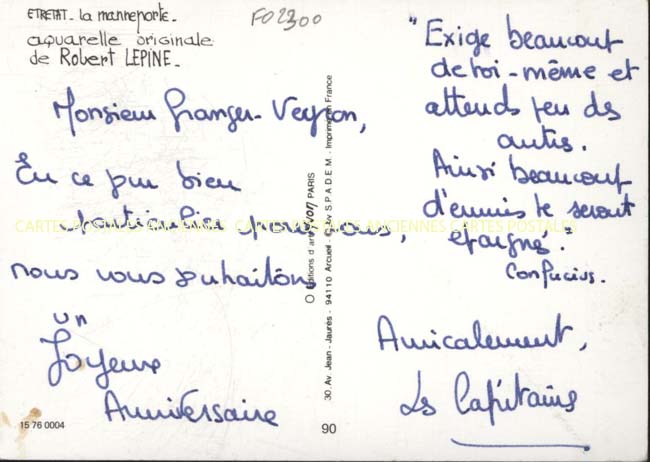 ETRETAT - la manneporte -
aquarelle originale
de Robert LEPINE -
FO2300
Monsieur Granger-Veyron,
En ce jour bien
particulier pour vous,
nous vous souhaitons
un
Joyeux
Anniversaire
15 76 0004
O Editions d'art Yvon PARIS
30, Av. Jean-Jaurès - 94110 Arcueil - © by S.P.A.D.E.M. - Imprimé en France
90
"Exige beaucoup
de toi-même et
attends peu des
autres.
Ainsi beaucoup
d'ennuis te seront
épargnés."
Confucius.
Amicalement,
Les Capitains
CARTES POSTALES ANCIENNES CARTES POSTALES ANCIENNES CARTES POSTALES